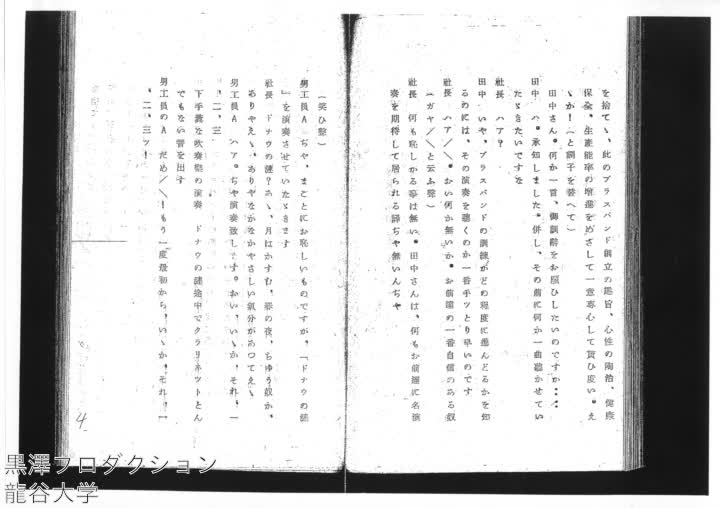 を捨てゝ、此のブラスバンド創立の趣旨、心性の陶冶、健康
保全、生産能率の増進をめざして一意専心して貰ひ度い。え
ゝか！（と調子を替へて）
田中さん。何か一言、御訓辞をお願ひしたいのですが‥‥
田中　ハ。承知しました。併し、その前に何か一曲聴かせてい
たゞきたいですな
社長　ハア？
田中　いや、ブラスバンドの訓練がどの程度に進んどるかを知
るのには、その演奏を聴くのが一番手ッとり早いのです
社長　ハア／＼。おい何か無いか。お前達の一番自信のある奴
（ガヤ／＼と云ふ声）
社長　何も恥しがる事は無い。田中さんは、何もお前達に名演
奏を期待して居られる訳ぢや無いんぢや
（笑ひ声）
男工員A　ぢや、まことにお恥しいものですが、「ドナウの漣
」を演奏させていたゞきます
社長　ドナウの漣？あゝ、月はかすむ、春の夜、ちゆう奴か、
ありやえゝ、ありやなかなかやさしい気分があつてえゝ
男工員A　ハア。ぢや演奏致します。おい、いゝか、それ、一
、二、三
下手糞な吹奏楽の演奏　ドナウの漣途中でクラリネツトとん
でもない音を出す
男工員のA　だめ／＼！もう一度最初から、いゝか、それ、一
、二、三ッ！
4
黒澤プロダクション
龍谷大学